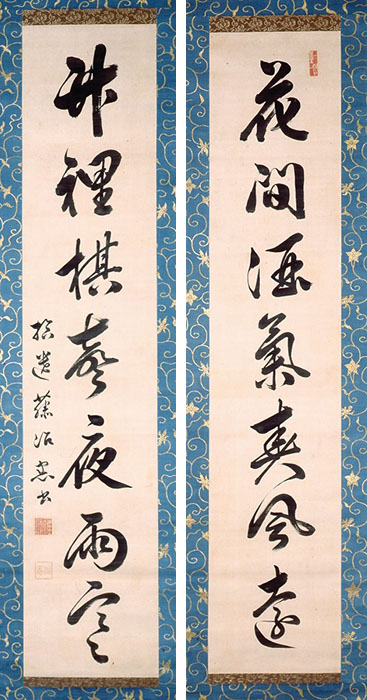 花間酒氣春風遠
竹裡棋聲夜雨寒
拾遺藤治憲書